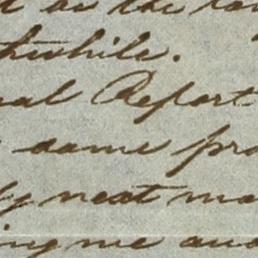 t as the
thwhile.
ual Report
same pro
ly neat ma
ing me and